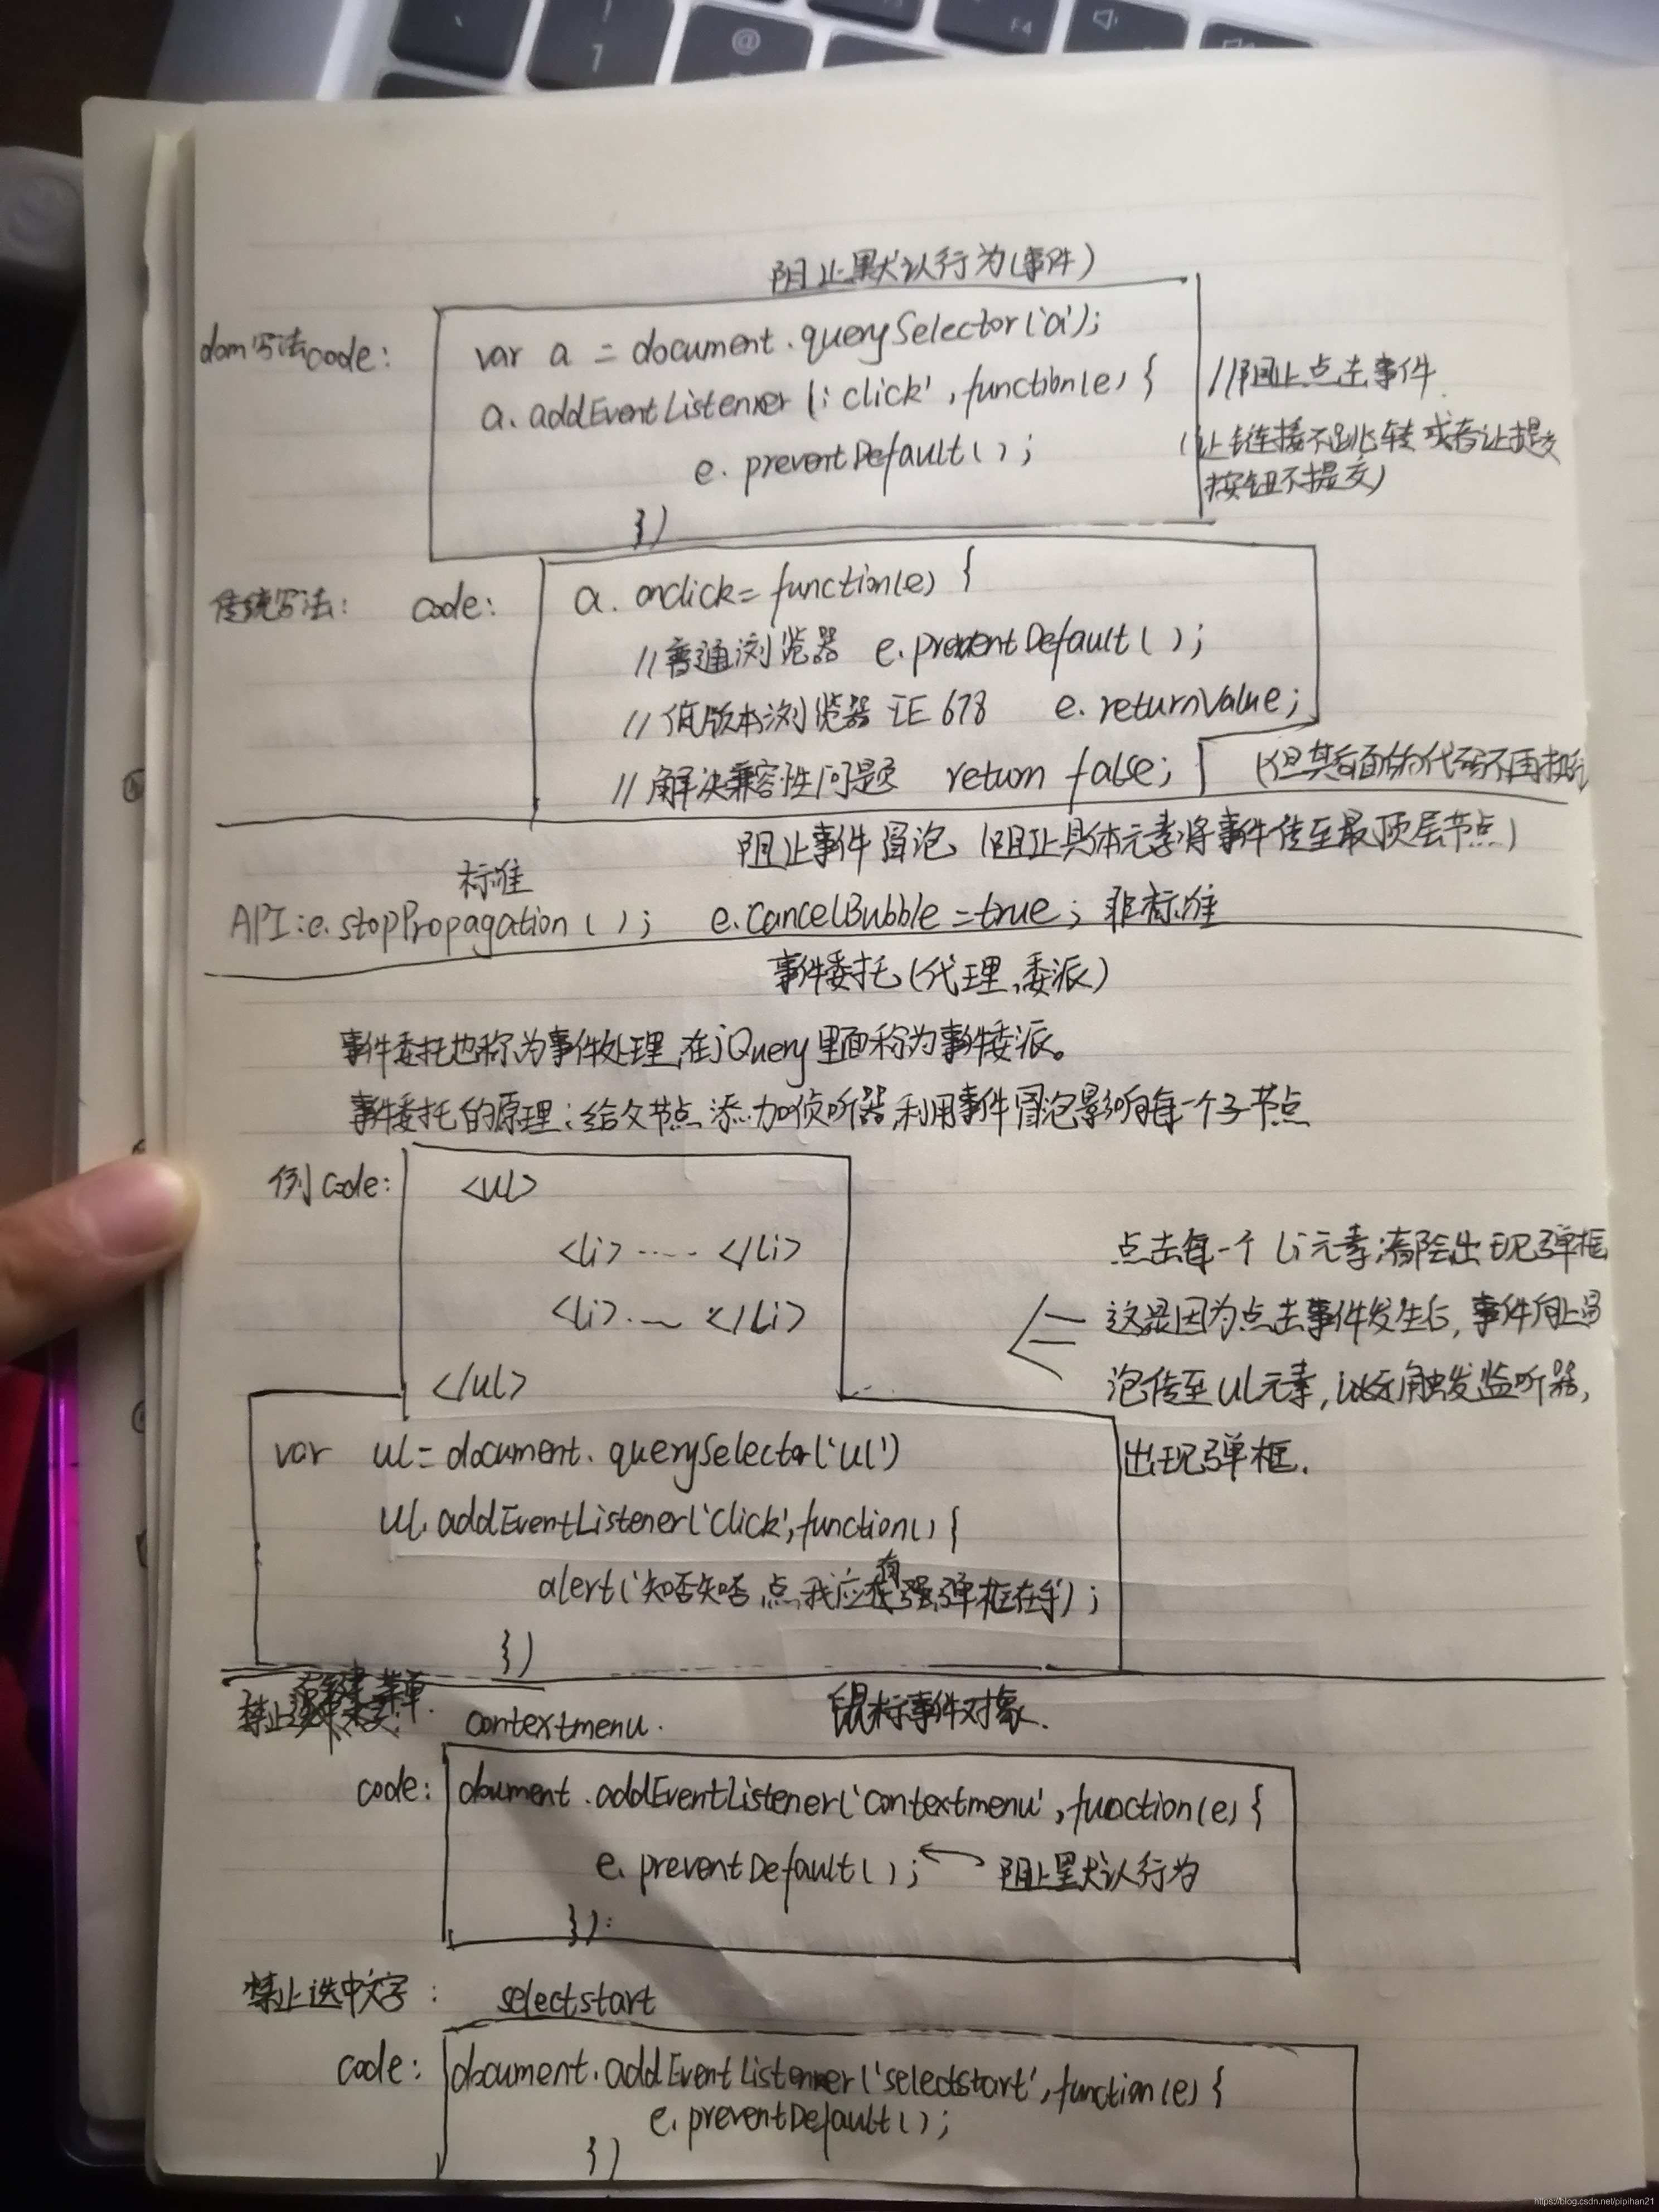 阻止默认行为(事件)
dom写法code:
var a = document.querySelector('a');
a.addEventListener(;click',function(e) {
e.preventDefault();
})
//阻止点击事件
(让链接不跳转或者让提交
按钮不提交)
传统写法: code:
a.onclick=function(e) {
//普通浏览器 e.preventDefault();
//低版本浏览器 IE 678 e.returnValue;
//解决兼容性问题 return false;
(但其后面的代码不再执行
阻止事件冒泡 (阻止具体元素将事件传至最顶层节点)
标准
API:e.stopPropagation(); e.cancelBubble=true; 非标准
事件委托(代理、委派)
事件委托也称为事件处理,在jQuery里面称为事件委派。
事件委托的原理:给父节点添加侦听器,利用事件冒泡影响每一个子节点
例code:
<ul>
<li>.....</li>
<li>.... </li>
</ul>
点击每一个li元素,都会出现弹框
这是因为点击事件发生后,事件向上冒
泡传至ul元素,从而触发监听器,
出现弹框.
var ul=document.querySelector('ul')
ul.addEventListener('click',function() {
alert('知否知否,点我应有弹框在手');
})
contextmenu.
鼠标事件对象.
code: document.addEventListener('contextmenu',function(e) {
e.preventDefault(); 阻止默认行为
});
禁止选中文字: selectstart
code: document.addEventListener('selectstart',function(e) {
e.preventDefault();
})
@
1
F4
https://blog.csdn.net/pipihan21